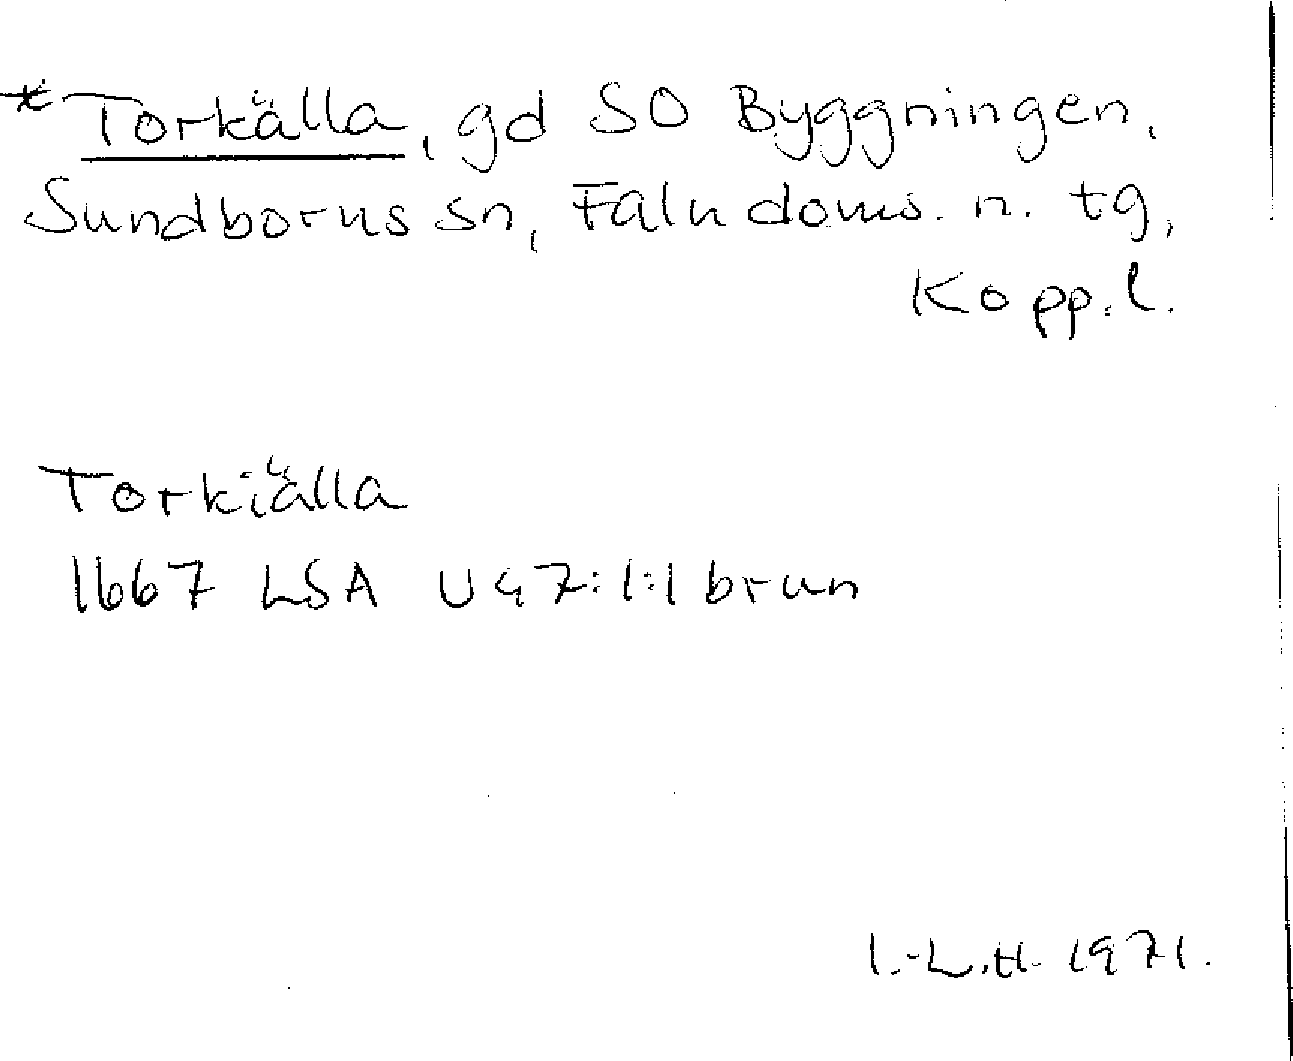 * Torkälla, gd SO Byggningen,
Sundborns sn, Falu doms. n. tg,
Kopp. l.
Torkiälla
1667 LSA U47:1:1 brun
I.-L.H. 1971.